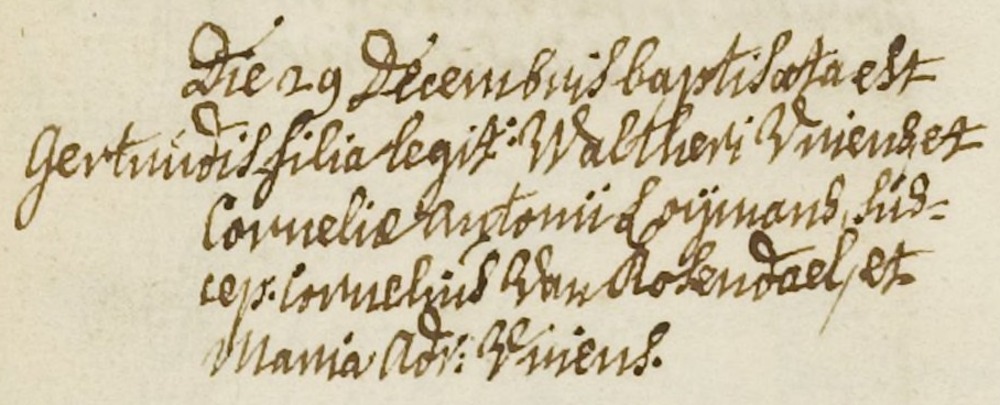 Die 29 Decembris baptisata est
Gertrudis filia legit: Waltheri Vriens, et
Corneliæ Antonii Loijmans, sus-
cep: Cornelius Van Rosendael, et
Maria Adr: Vriens.